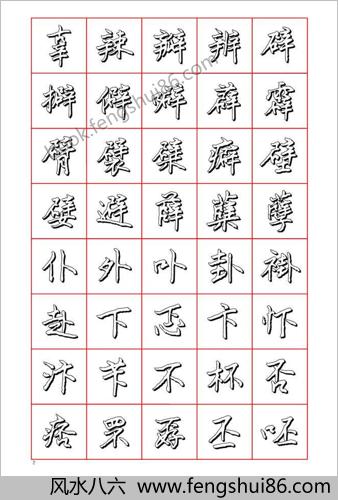 辜 辣 瓣 辨 辟
擗 僻 癖 薜 霹
臂 襞 劈 癖 壁
嬖 避 薛 蘖 孽
仆 外 卟 卦 褂
赴 下 忑 卞 忭
汴 苄 不 杯 否
痞 罘 孬 丕 呸
book.fengshui86.com
2
风水八六 www.fengshui86.com